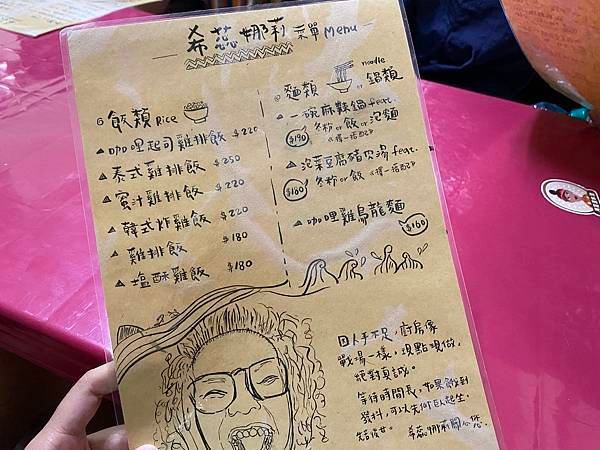 希蕊娜莉 菜單 Menu
飯類 Rice
咖哩起司雞排飯 $220
泰式雞排飯 $250
蜜汁雞排飯 $220
韓式炸雞飯 $220
雞排飯 $180
塩酥雞飯 $180
麵類 noodle or 鍋類
一碗麻辣鍋 feat.
$190 冬粉 or 飯 or 泡麵
泡菜豆腐豬肉湯 feat.
$160 冬粉 or 飯
咖哩雞烏龍麵
$160
因人手不足，廚房像
戰場一樣，現點現做，
絕對真誠。
等待時間長，如果餓到
發抖，可以先做臥起坐
希蕊娜莉關心您.